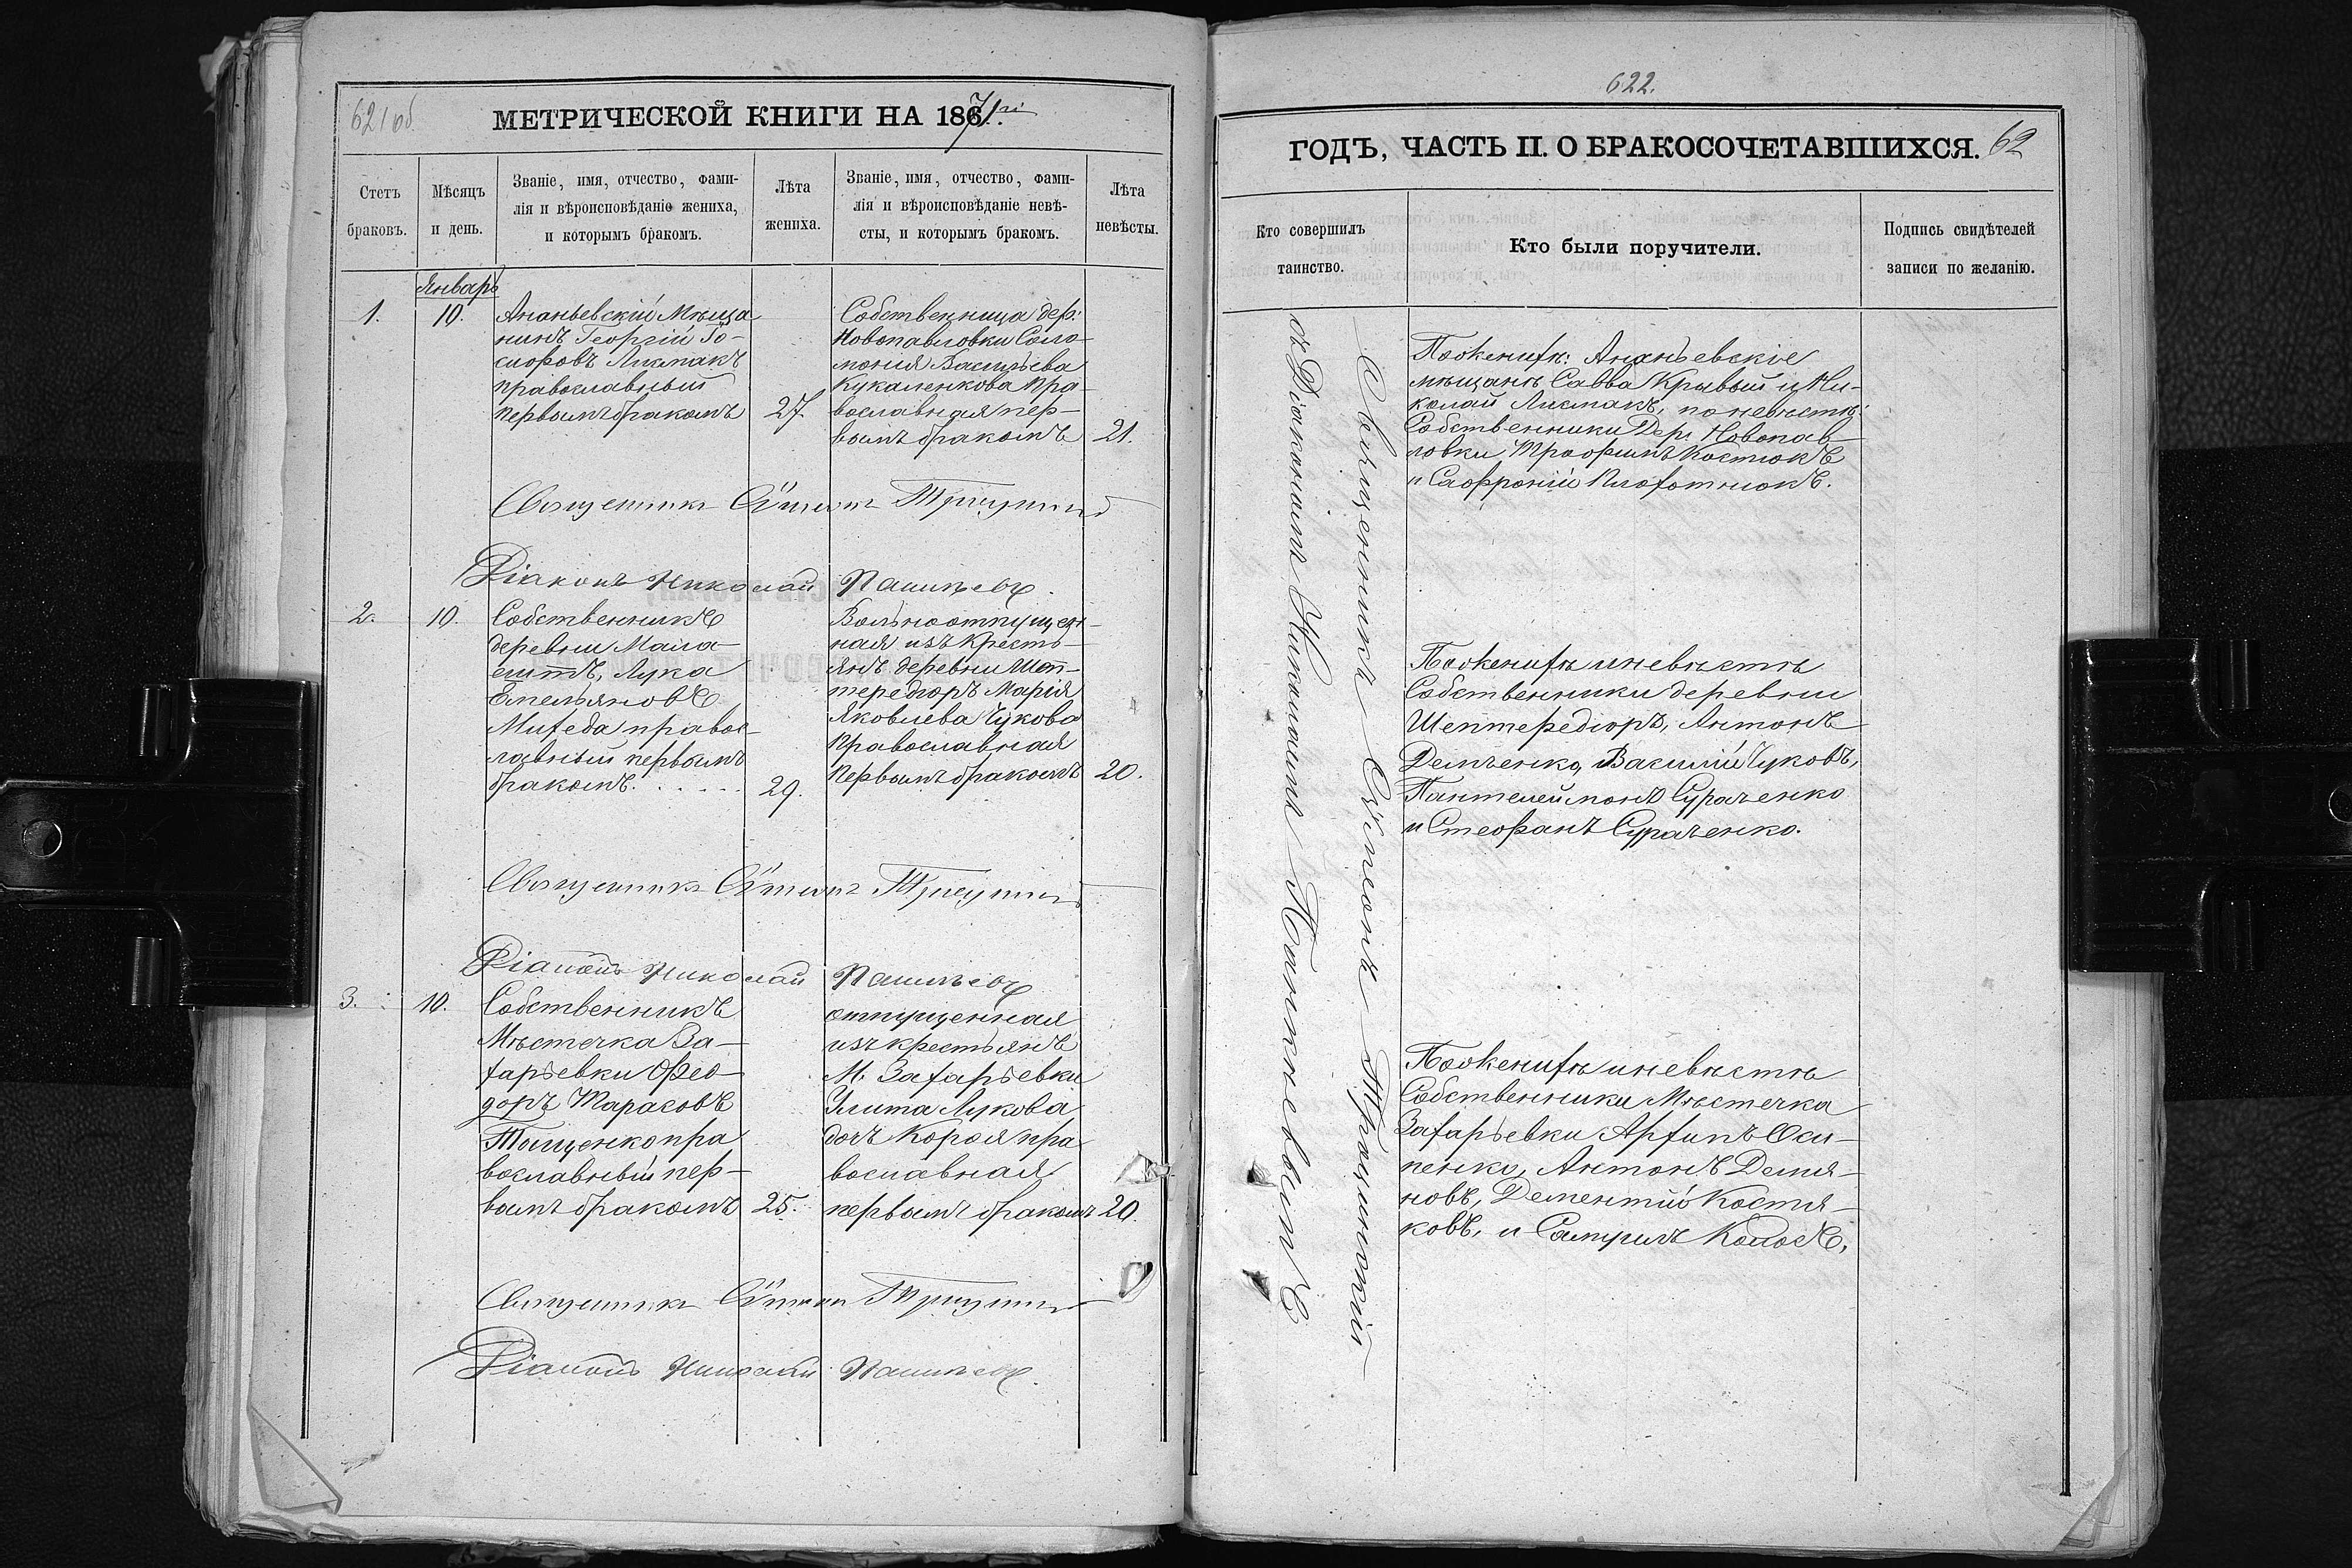 621 об
МЕТРИЧЕСКОЙ КНИГИ НА 1871.го
Счетъ браковъ.
Мѣсяцъ и день.
Званіе, имя, отчество, фами-
лія и вѣроисповѣданіе жениха,
и которымъ бракомъ.
Лѣта
жениха.
Званіе, имя, отчество, фами-
лія и вѣроисповѣданіе невѣ-
сты, и которымъ бракомъ.
Лѣта
невѣсты.
Январь
1.
10.
Ананьевскій Мѣща
нинъ Георгій
православный
первымъ бракомъ
27.
Собственница дер:
Новопавловки Соло-
монія Васильева
Кукаленкова пра-
вославная пер-
вымъ бракомъ
21.
Священникъ
Діаконъ Николай
2.
10.
Собственникъ
деревни Мала-
ештъ, Лука
Емельяновъ
правос-
лавный первымъ
бракомъ.
29.
Вольноотпущен-
ная изъ кресть-
янъ деревни Шеп-
тередюръ Марія
Яковлева Чукова
Православная
Первымъ бракомъ
20.
Священникъ
Діаконъ Николай
3.
10.
Собственникъ
Мѣстечка За-
харьевки Ѳео-
доръ Тарасовъ
Тищенко пра
вославный пер-
вымъ бракомъ
25.
отпущенная
изъ крестьянъ
М. Захарьевки
Улита Лукова
дочь пра
вославная
первымъ бракомъ
20.
Священникъ
Діаконъ Николай
622.
ГОДЪ, ЧАСТЬ II. О БРАКОСОЧЕТАВШИХСЯ. 62
Кто совершилъ
таинство.
Кто были поручители.
Подпись свидѣтелей
записи по желанію.
Священникъ
съ Діакономъ Николаемъ
По женихѣ: Ананьевскіе
мѣщане Савва Крывый и Ни-
колай по невѣстѣ:
Собственники Дер: Новопав-
ловки Трофимъ Костюкъ
и Софроній Плохотнюкъ.
По женихѣ и невѣстѣ
Собственники деревни
Шептередюръ, Антонъ
Демченко, Василій Чуковъ,
Пантелеймонъ Сураченко
и Стефанъ Сураченко.
По женихѣ и невѣстѣ
Собственники Мѣстечка
Захарьевки Архипъ Оси-
пенко, Антонъ Демья-
новъ, Дементій Костя-
ковъ, и